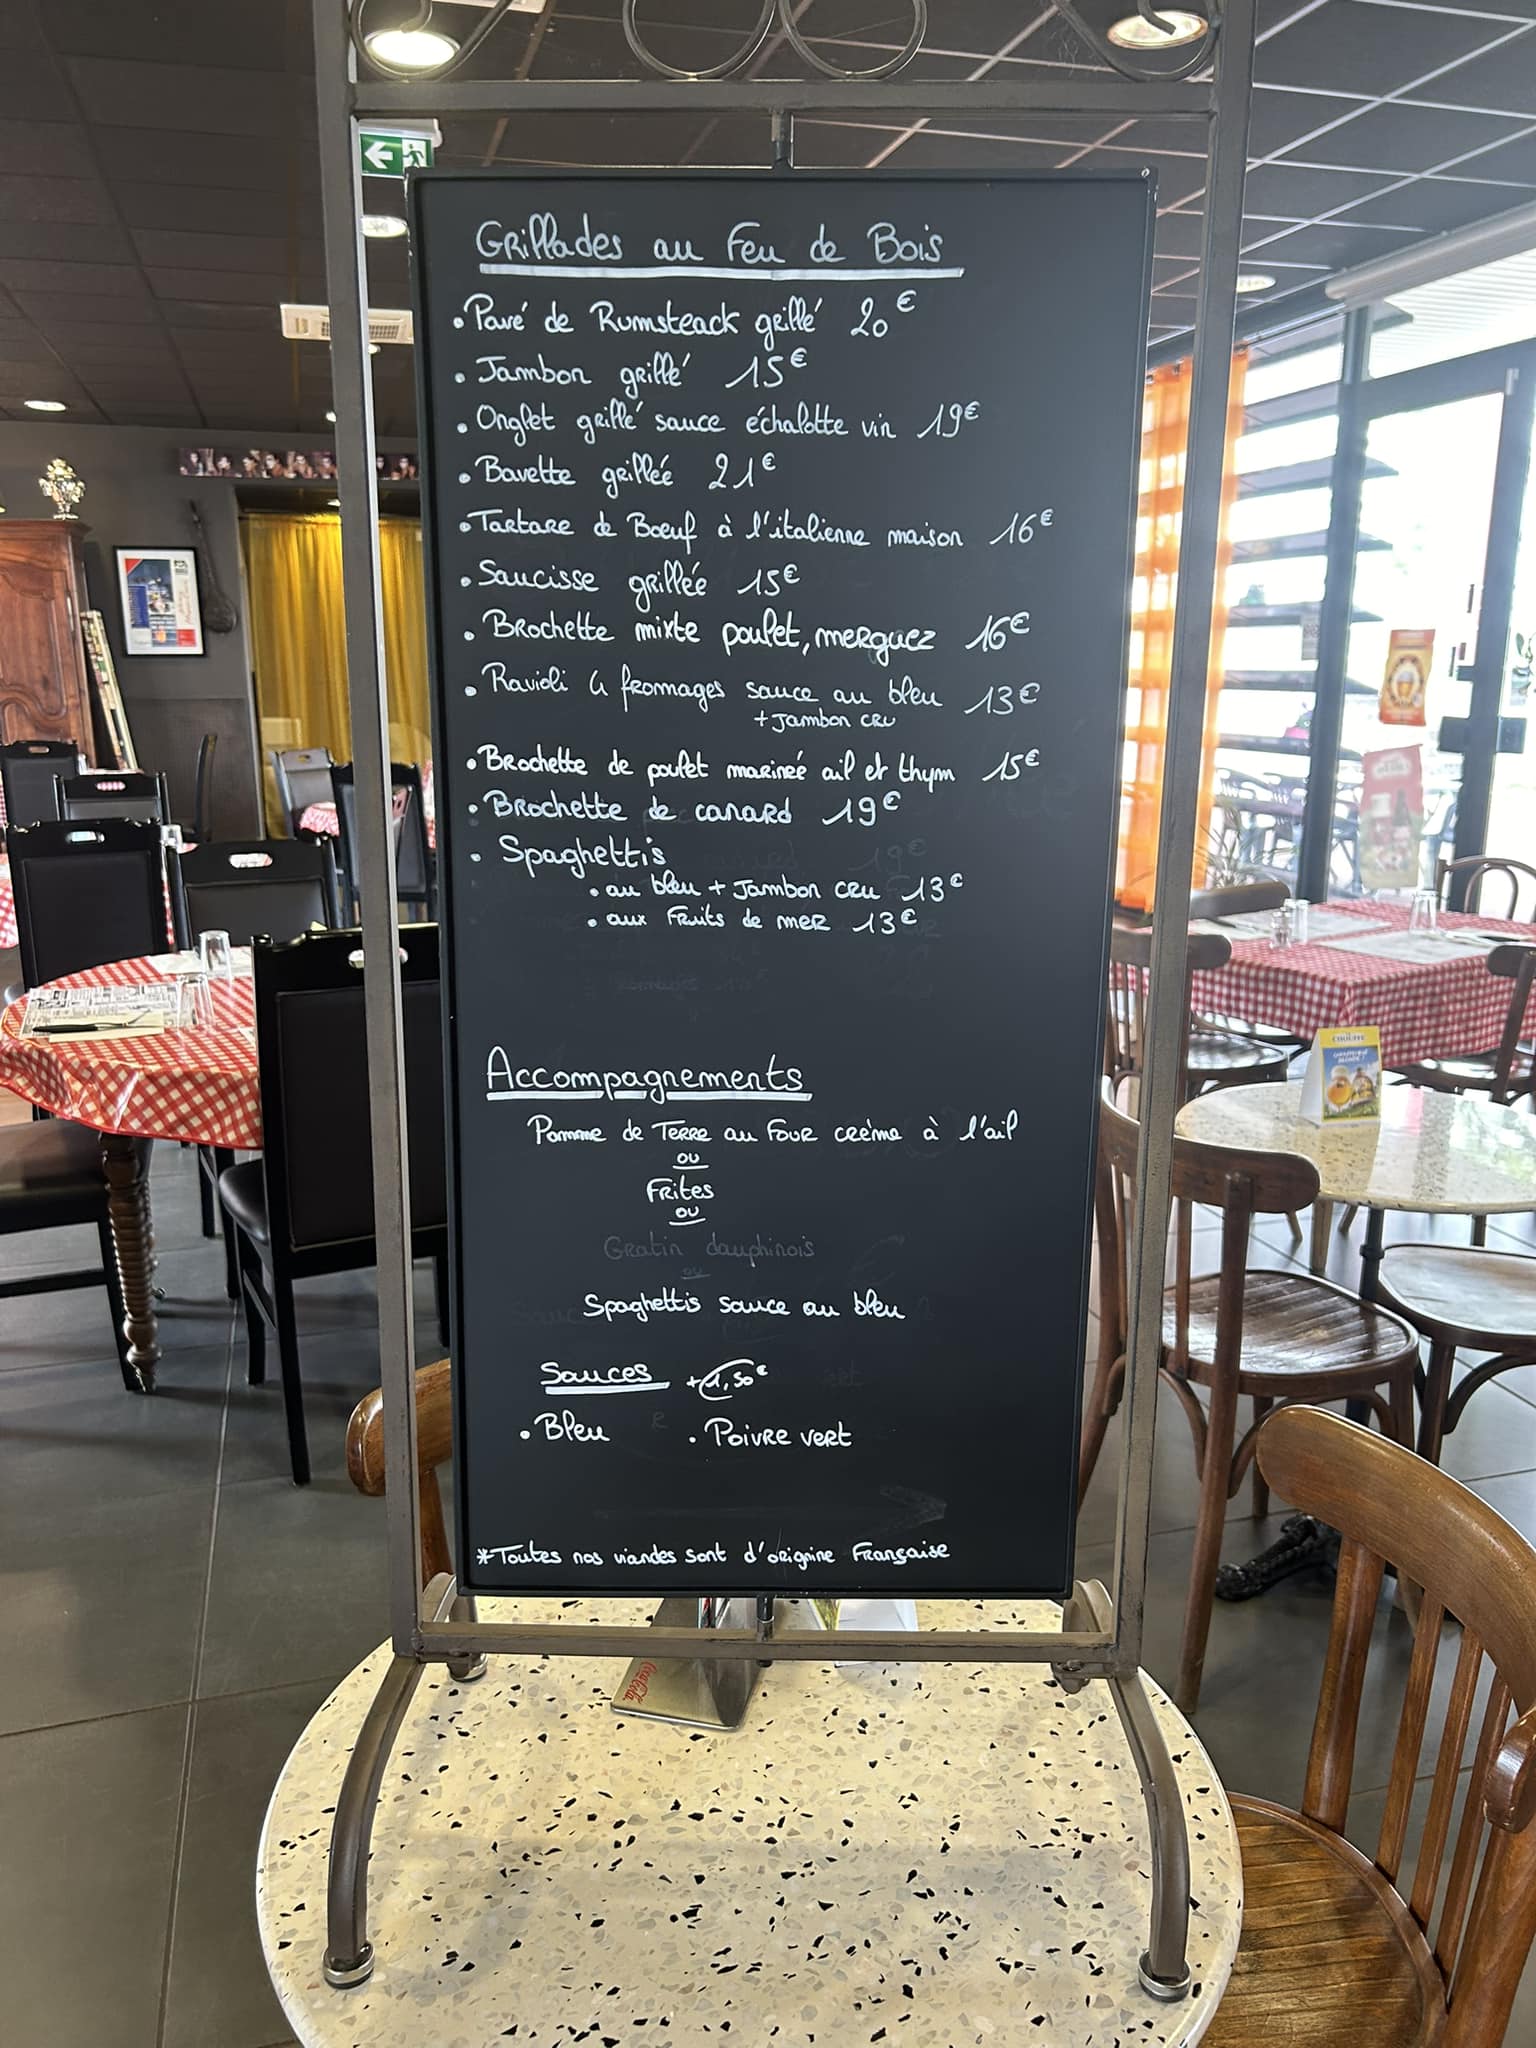 Grillades au Feu de Bois
• Pavé de Rumsteack grillé 20€
• Jambon grillé 15€
• Onglet grillé sauce échalotte vin 19€
• Bavette grillée 21€
• Tartare de Bœuf à l'italienne maison 16€
• Saucisse grillée 15€
• Brochette mixte poulet, merguez 16€
• Ravioli 4 fromages sauce au bleu 13€
+ Jambon cru
• Brochette de poulet marineé ail et thym 15€
• Brochette de canard 19€
• Spaghettis
• au bleu + Jambon cru 13€
• aux Fruits de mer 13€
Accompagnements
Pomme de Terre au Four crème à l'ail
ou
Frites
ou
Gratin dauphinois
ou
Spaghettis sauce au bleu
Sauces +1,50€
• Bleu • Poivre vert
*Toutes nos viandes sont d'originine Française
Coca-Cola
CHOUFFE